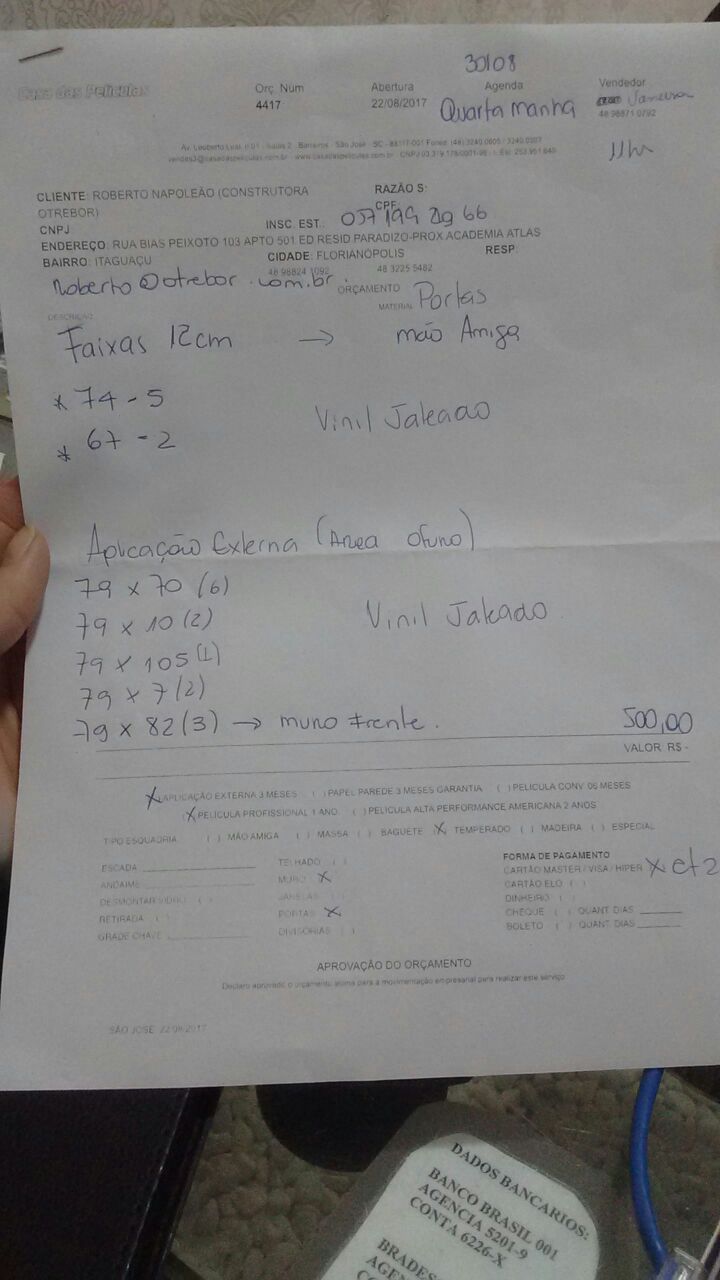 30/08
Casa das Películas
Orç. Num
Abertura
Agenda
Vendedor
4417
22/08/2017
Quarta manhã
48 98871 0792
11hr
CLIENTE: ROBERTO NAPOLEÃO (CONSTRUTORA
OTREBOR)
RAZÃO S:
CPF:
CNPJ
INSC. EST.:
ENDEREÇO: RUA BIAS PEIXOTO 103 APTO 501 ED RESID PARADIZO-PROX ACADEMIA ATLAS
BAIRRO: ITAGUAÇU
CIDADE: FLORIANÓPOLIS
RESP:
48 98824 1092
48 3225 5482
roberto@otrebor.com.br
ORÇAMENTO
Portas
MATERIAL
DESCRIÇÃO
Faixas 12cm → mão Amiga
* 74 - 5
Vinil Jateado
* 67 - 2
Aplicação Externa (Area ofuro)
79 x 70 (6)
79 x 10 (2)
Vinil Jateado
79 x 105 (1)
79 x 7 (2)
79 x 82 (3) → muro frente.
500,00
VALOR R$ -
X APLICAÇÃO EXTERNA 3 MESES ( ) PAPEL PAREDE 3 MESES GARANTIA ( ) PELICULA CONV 06 MESES
(X PELICULA PROFISSIONAL 1 ANO. ( ) PELICULA ALTA PERFORMANCE AMERICANA 2 ANOS
TIPO ESQUADRIA ( ) MÃO AMIGA ( ) MASSA ( ) BAGUETE X TEMPERADO ( ) MADEIRA ( ) ESPECIAL
ESCADA
ANDAIME
DESMONTAR VIDRO ( )
RETIRADA ( )
GRADE CHAVE
TELHADO ( )
MURO X
JANELAS ( )
PORTAS X
DIVISÓRIAS ( )
FORMA DE PAGAMENTO
CARTÃO MASTER / VISA / HIPER X
CARTÃO ELO ( )
DINHEIRO ( )
CHEQUE ( ) QUANT DIAS
BOLETO ( ) QUANT DIAS
APROVAÇÃO DO ORÇAMENTO
Declaro aprovado o orçamento acima para a movimentação empresarial para realizar este serviço
SÃO JOSE 22/08/2017
DADOS BANCARIOS:
BANCO BRASIL 001
AGENCIA 5201-9
CONTA 6226-X